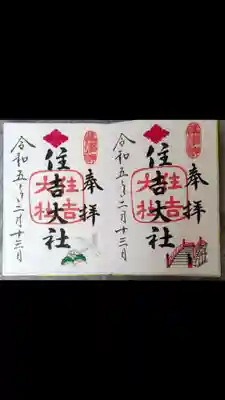 奉拝
住吉大社
住吉
大社
令和五年二月十三日
奉拝
住吉大社
住吉
大社
令和五年二月十三日